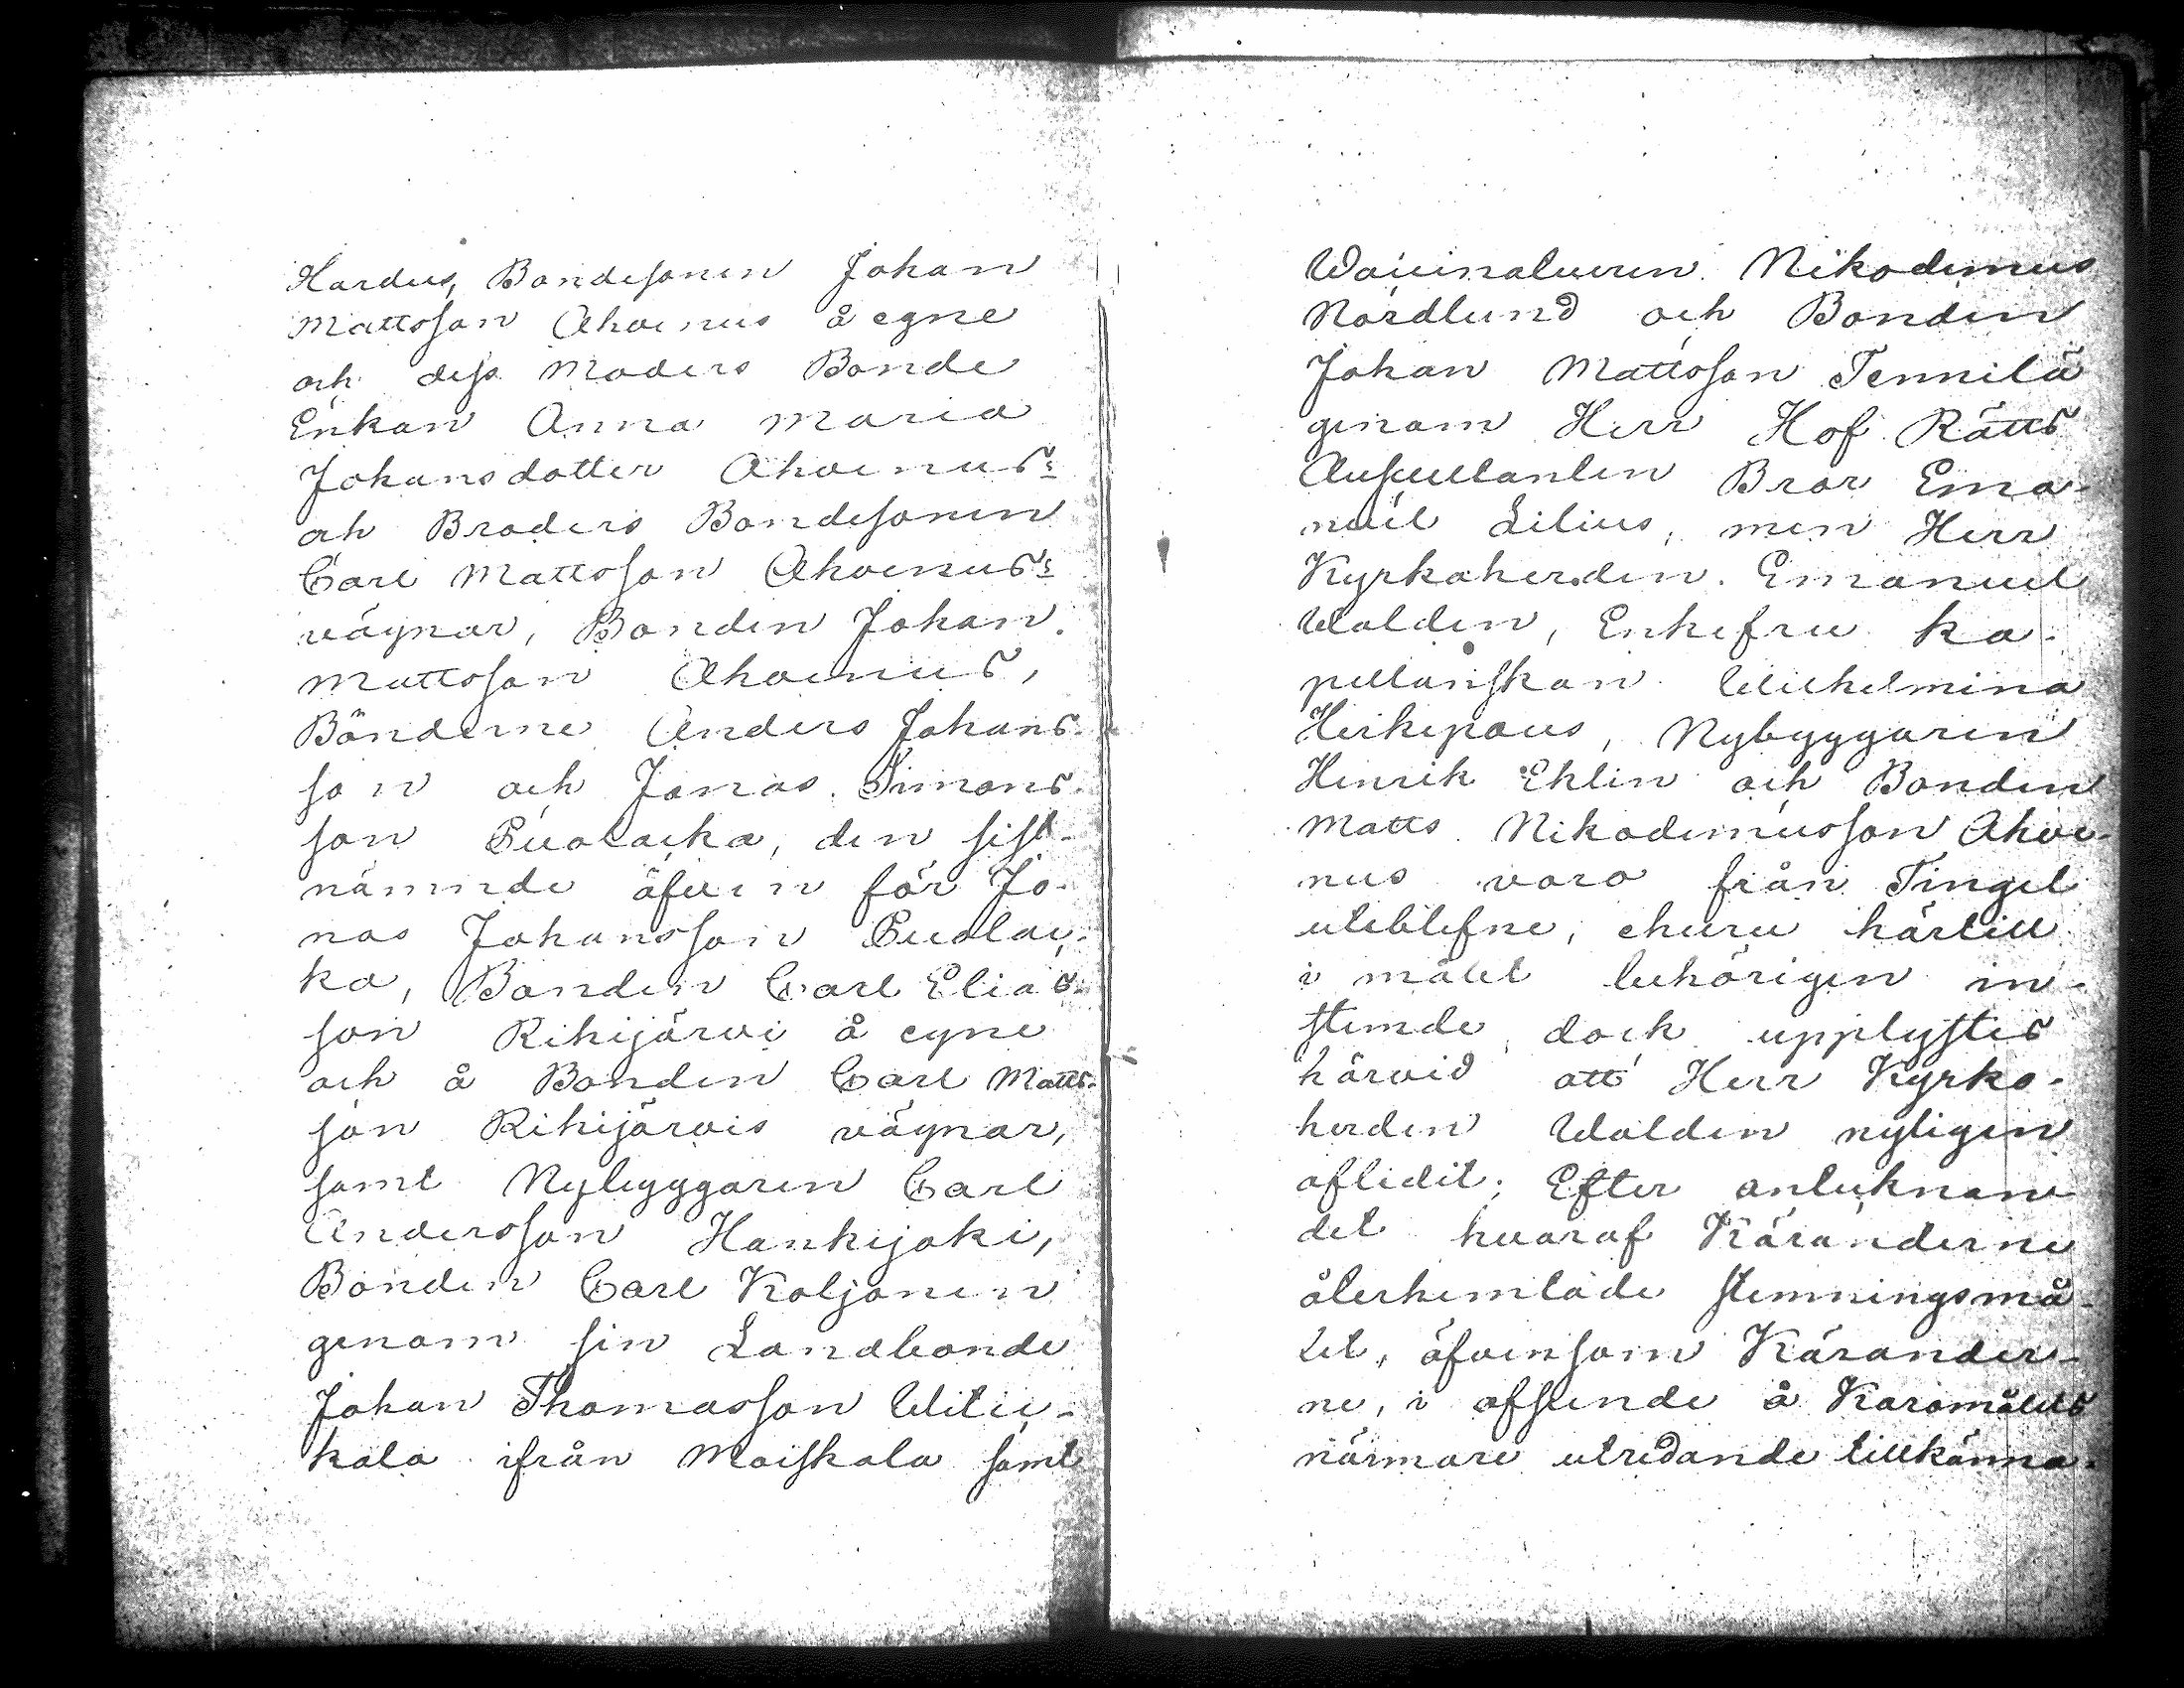 Hardus, Bondesonen Johan
Mattsson Ahvenus å egne
och dess Moders Bonde
Enkan Anna Maria
Johansdotter Ahvenus's
och Broders Bondesonen
Carl Mattsson Ahvenus's
vägnar, Bonden Johan
Mattsson Ahvenus,
Bönderne Anders Johans-
son och Jonas Simons-
son Puolacka, den sist-
nämnde äfven för Jo-
nas Johansson Puolac-
ka, Bonden Carl Elias-
son Rihijärvi å egne
och å Bonden Carl Matts-
son Rihijärvis vägnar,
samt Nybyggaren Carl
Andersson Hankijoki,
Bonden Carl Koljonen
genom sin Landbonde
Johan Thomasson Witic-
kala ifrån Maiskala samt
Nikodemus
Nordlund och Bonden
Johan Mattsson Tennilä
genom Herr Hof Rätts
Auscultanten Bror Ema-
nuel Lilius, men Herr
Kyrkoherden Emanuel
Walden, Enkefru Ka-
pellanskan Wilhelmina
Heikepaus, Nybyggaren
Henrik Ehlin och Bonden
Matts Nikodemusson Ahve-
nus voro från Tinget
uteblefne, ehuru härtill
i målet behörigen in-
stemde, dock upplystes
härvid att Herr Kyrko-
herden Walden nyligen
aflidit; Efter anteknan-
det hvaraf Käranderne
återhemtade stemningsmå-
let, äfvensom Kärander-
ne, i afseende å Käromålets
närmare utredande tillkänna-